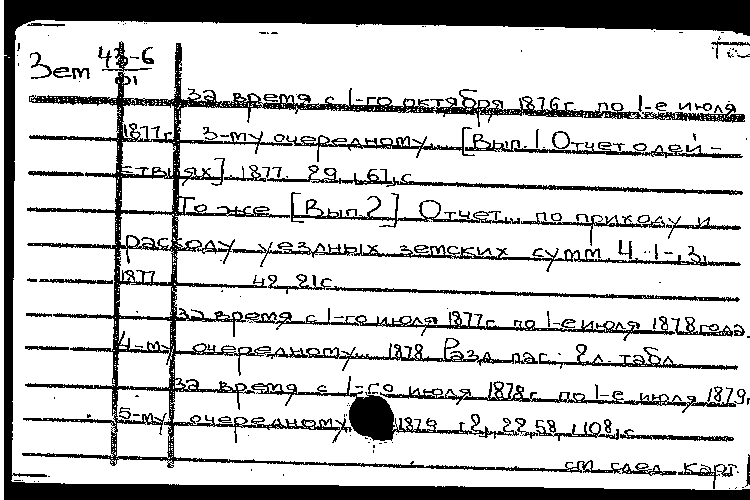 Зем 43-6
За время с 1-го октября 1876 г. по 1-е июля
1877г. 3-му очередному... [Вып. 1 Отчет о дей-
ствиях]. 1877. 29, 167, с
То же [Вып 2] Отчет... по приходу и
расходу уездных земских сумм Ч. 1-, 3,
1877 42, 21с.
За время с 1-го июля 1877г. по 1-е июля 1878 года.
4-му очередному... 1878 Разд. паг.; 2 л. табл
За время с 1-го июля 1878г. по 1-е июля 1879г
5-му очередному 1879 22, 58, 108, с
см след. карт